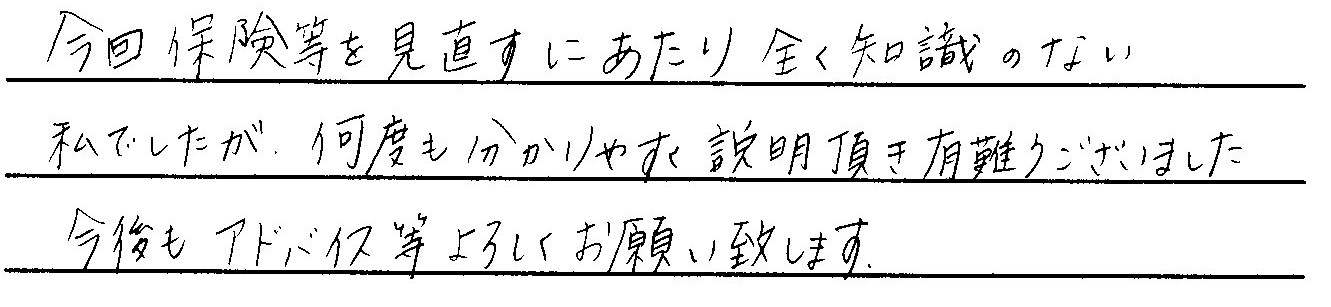 今回保険等を見直すにあたり全く知識のない
私でしたが、何度も分かりやすく説明頂き有難うございました
今後もアドバイス等よろしくお願い致します。